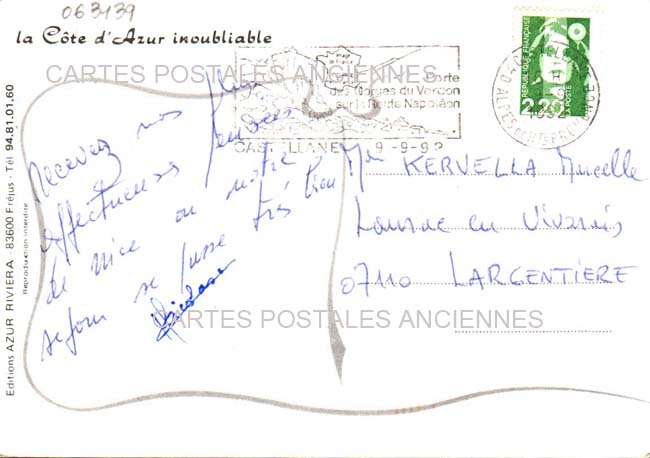 063139
la Côte d'Azur inoubliable
CARTES POSTALES ANCIENNES
Porte
des Gorges du Verdon
sur la Route Napoléon
CASTELLANE 9-9-92
RÉPUBLIQUE FRANÇAISE
2,20
LA POSTE
04 ALPES DE HTE PROVENCE
Recevez nos plus
affectueuses pensées
de Nice ou notre
séjour se passe très bien
Mme KERVELLA Marcelle
Laurac en Vivarais
07110 LARGENTIERE
CARTES POSTALES ANCIENNES
Editions AZUR RIVIERA - 83600 Fréjus - Tél 94.81.01.60
Reproduction interdite